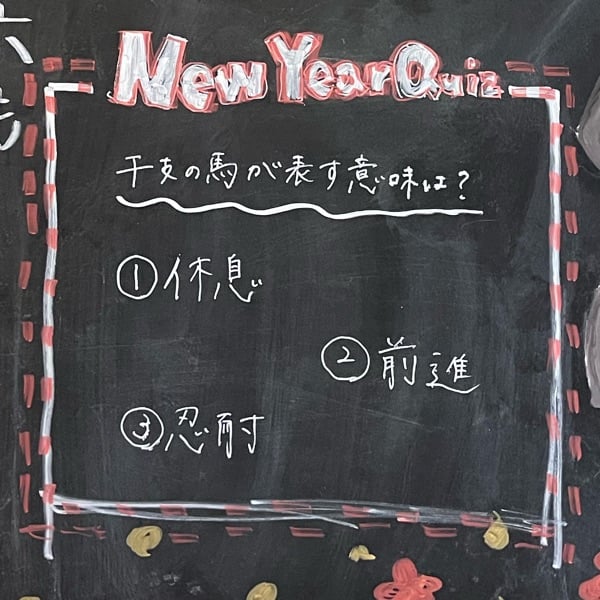 New Year Quiz
干支の馬が表す意味は?
①休息
②前進
③忍耐